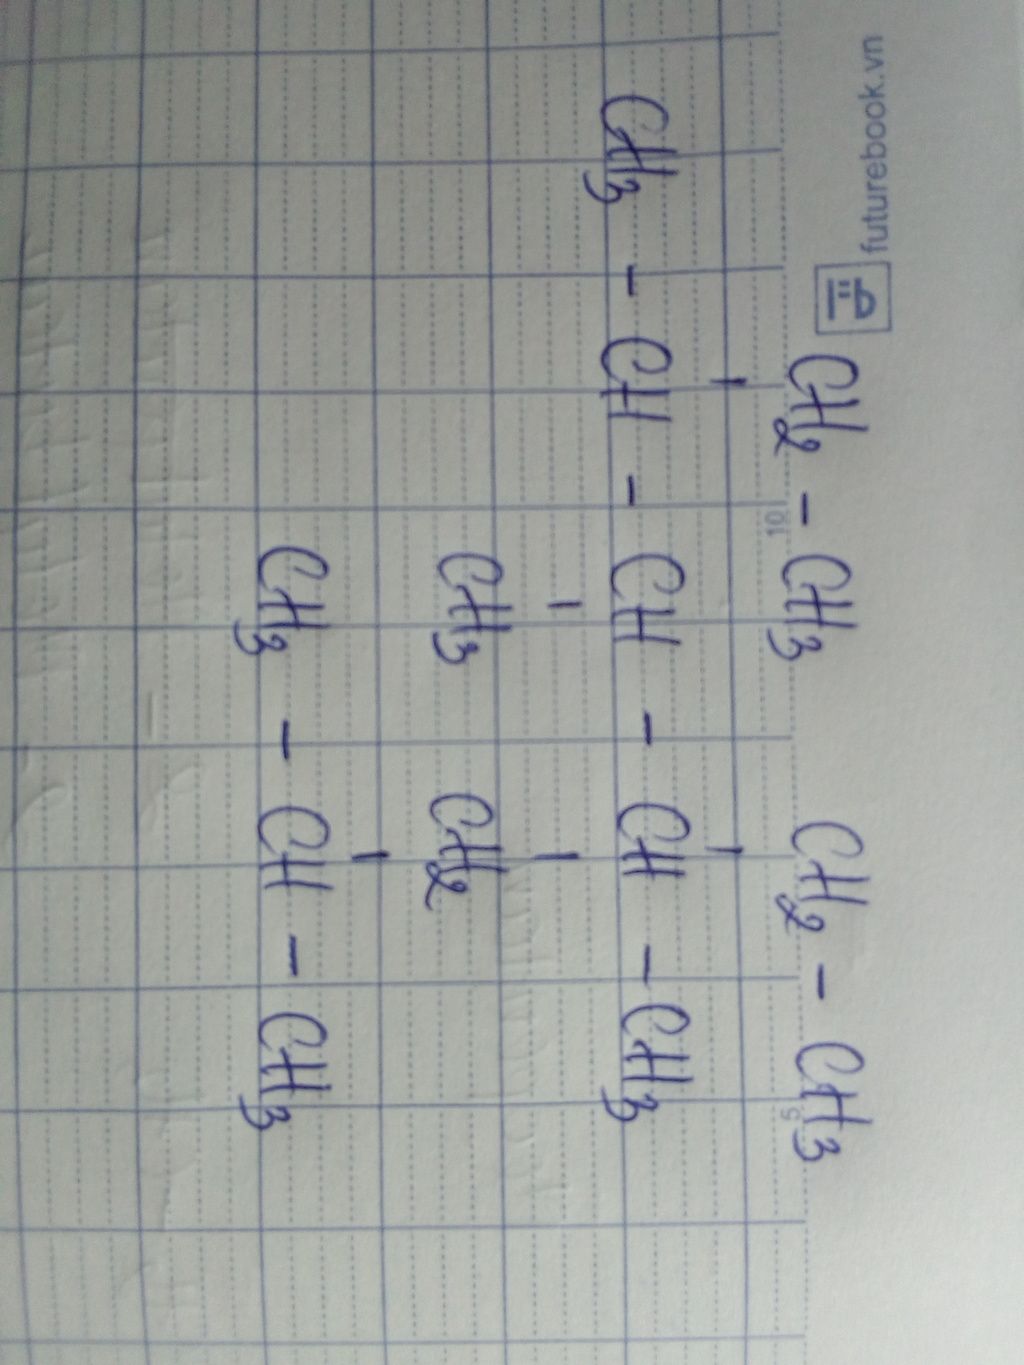 futurebook.vn
CH2 - CH3 CH2 - CH3
CH3 - CH - CH - CH - CH3
CH3 CH2
CH3 - CH - CH3
10
5